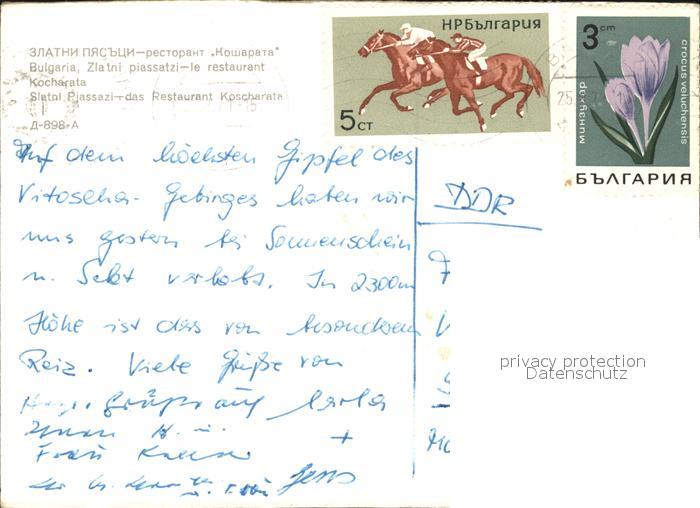 ЗЛАТНИ ПЯСЪЦИ—ресторант „Кошарата"
Bulgaria, Zlatni piassatzi—le restaurant
Kocharata
Slatni Pjassazi—das Restaurant Koscharata
Д-898-А
НРБългария
5 СТ
3 cm
минзухар
crocus veluchensis
БЪЛГАРИЯ
Auf dem höchsten Gipfel des
Vitoscha- Gebirges haben wir
uns gestern bei Sonnenschein
u. Sekt verlobt. In 2300m
Höhe ist das von besonderem
Reiz. Viele Grüße von
Carla
+
Jens
DDR
privacy protection
Datenschutz